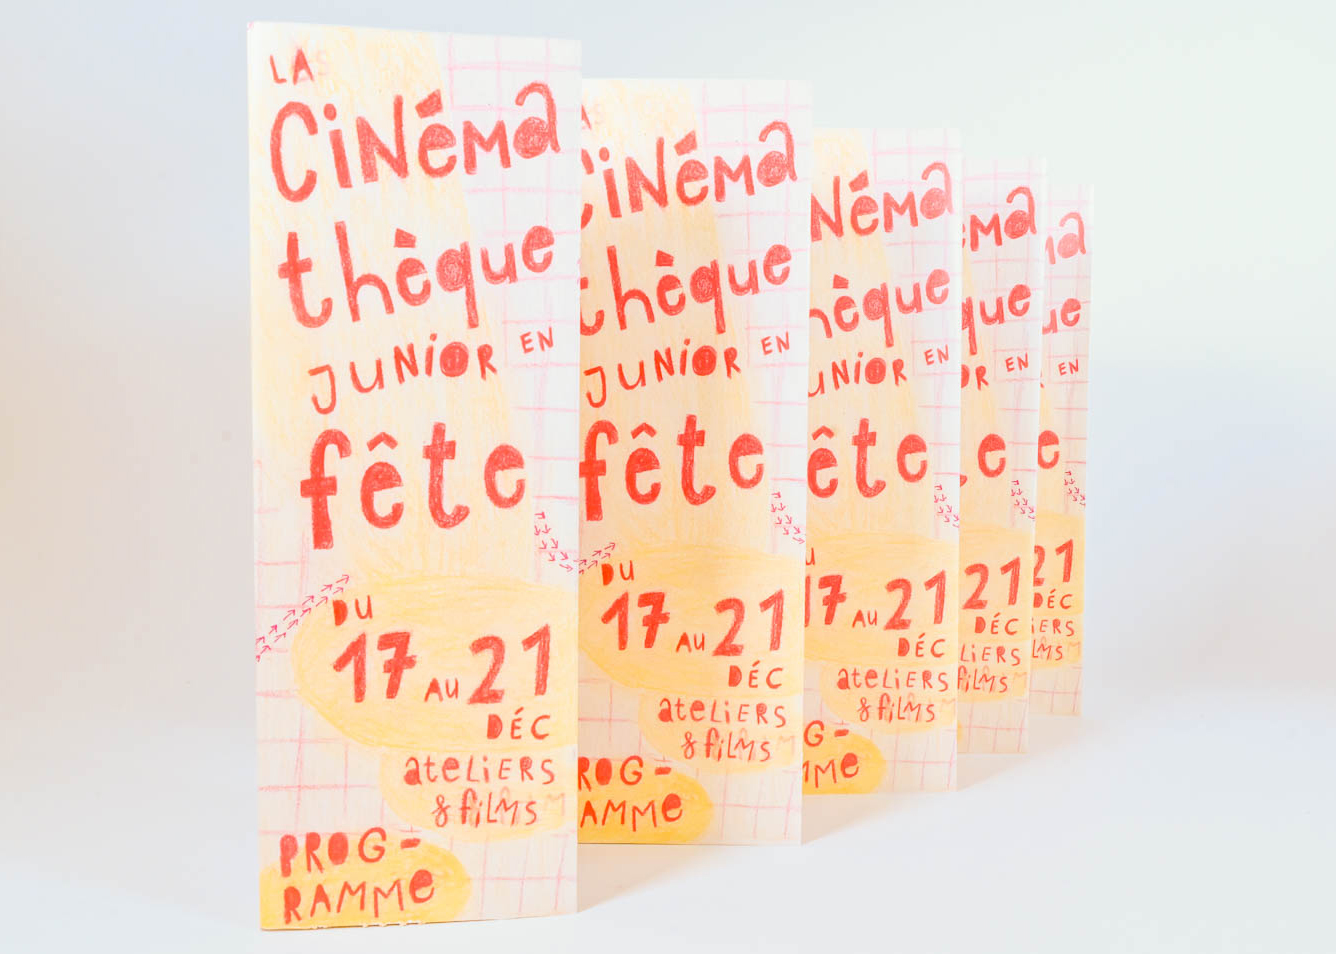 LA
Cinéma
thèque
JUNiOR EN
fête
DU
17 AU 21
DÉC
ateLiERS
& fiLMS
PROG-
RAMMe
LA
CiNéma
thèque
JUNiOR EN
fête
DU
17 AU 21
DÉC
ateLiERS
& fiLMS
ROG-
AMMe
Néma
hèque
UNiOR EN
ête
17 AU 21
DÉC
ateLiERS
& fiLMS
G-
Me
ma
que
R EN
e
21
DÉC
LiERS
fiLMS
a
ue
EN
e
21
DÉC
iERS
LMS